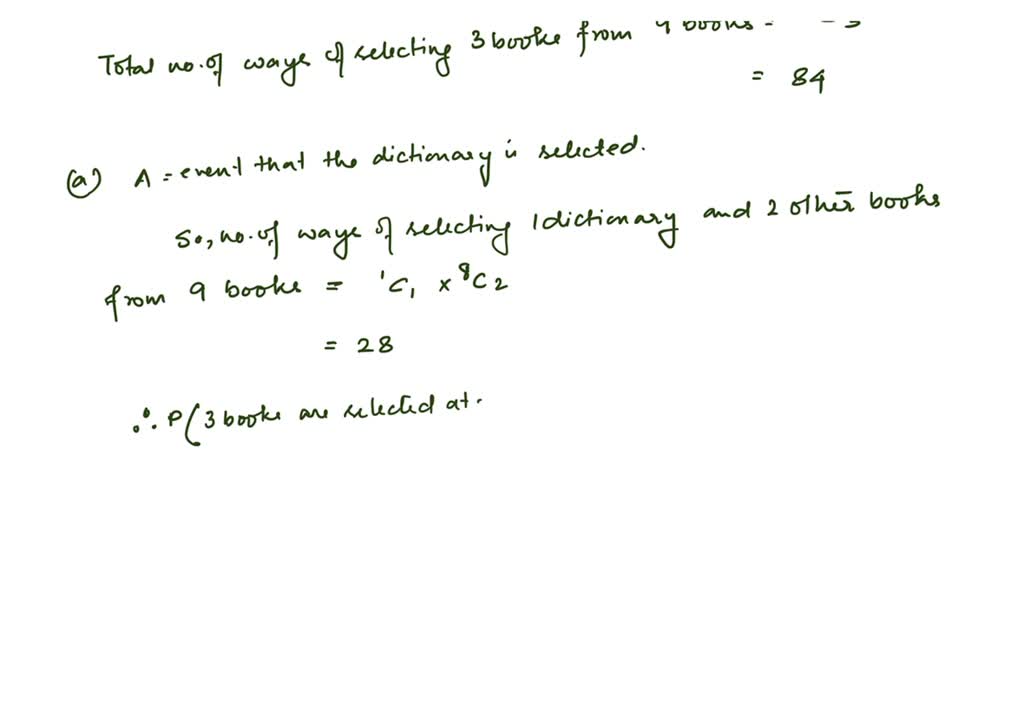 Total no. of ways of selecting 3 books from 9 books =
= 84
(a) A = event that the dictionary is selected.
So, no. of ways of selecting 1 dictionary and 2 other books
from 9 books = ¹C₁ × ⁸C₂
= 28
∴ P(3 books are selected at